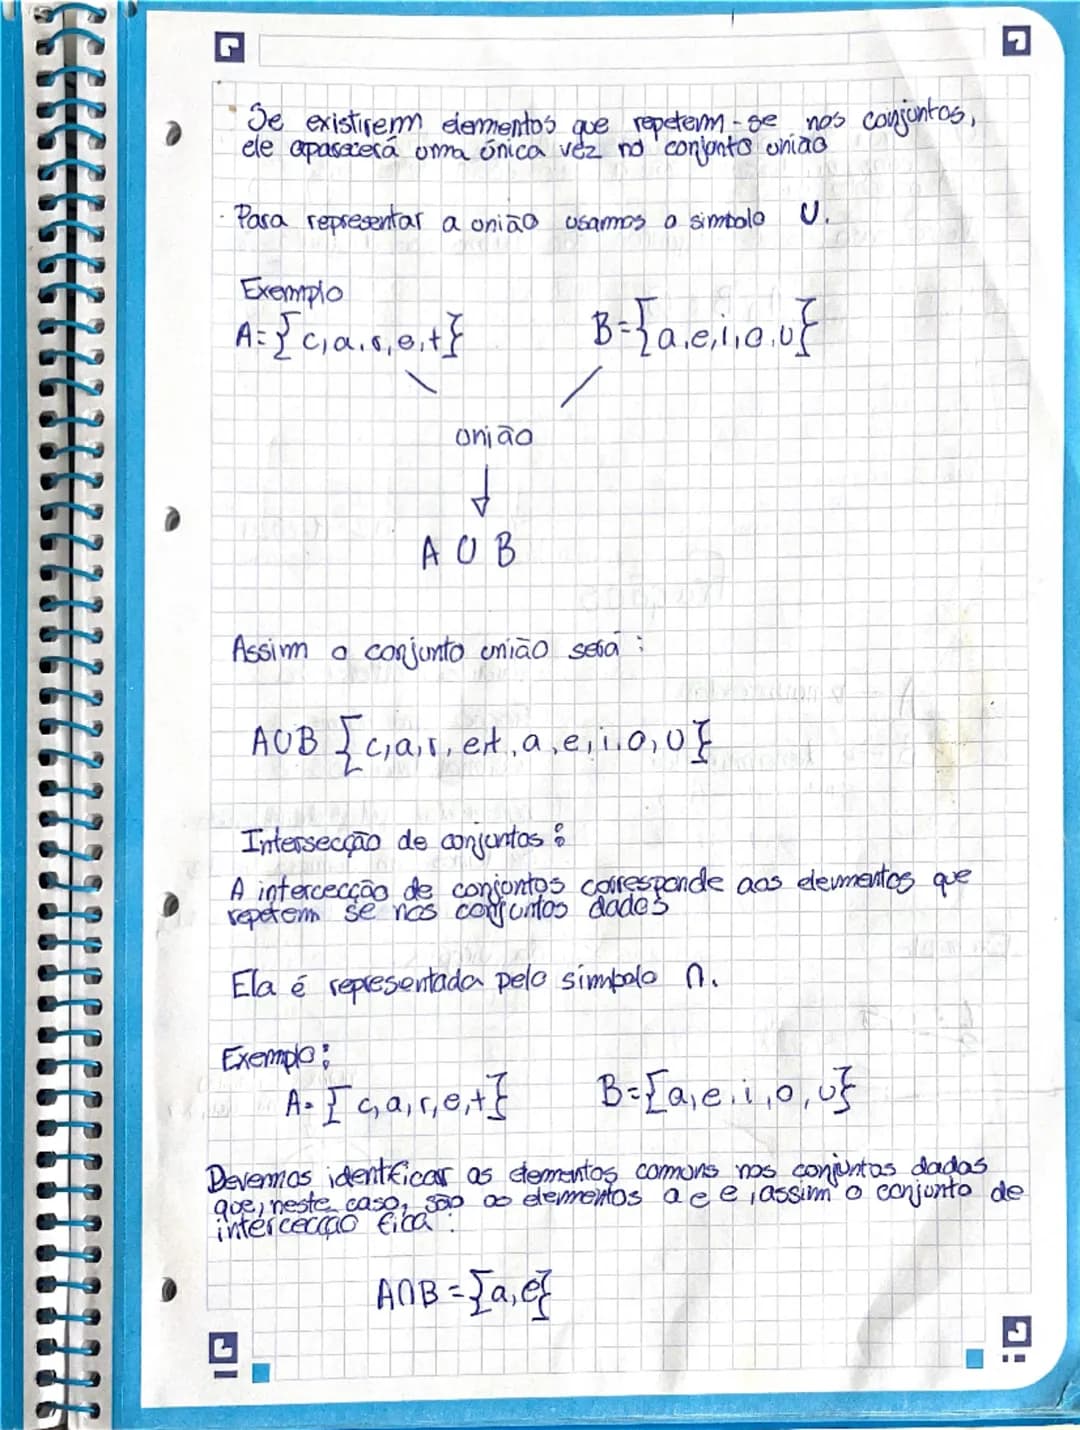 Se existirem elementos que repetem-se nos conjuntos,
ele aparecerá uma única vez no conjunto união
Para representar a união usarmos o simbolo U.
Exemplo
A={c,a,r,e,t} B={a,e,i,o,u}
união
A U B
Assim o conjunto união será:
AUB {c,a,r,e,t,a,e,i,o,u}
Intersecção de conjuntos:
A intercecção de conjuntos corresponde aos elementos que
repetem se nos conjuntos dados
Ela é representada pelo simbolo ∩.
Exemplo:
A={c,a,r,e,t} B={a,e,i,o,u}
Devemos identificar os elementos comuns nos conjuntos dados
que, neste caso, são os elementos a e e, assim o conjunto de
intercecção fica:
A∩B={a,e}